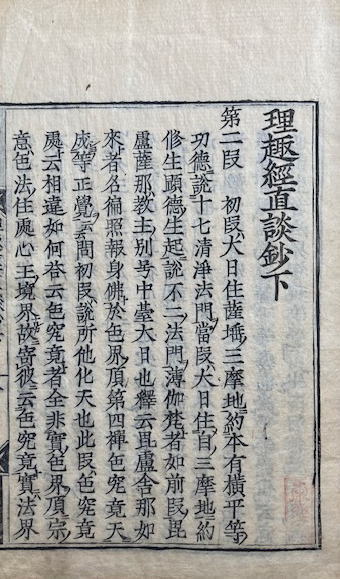 理趣經直談鈔下
第二段 初段大日住薩埵三摩地約本有橫平等
功德說十七清淨法門當段大日住自三摩地約
修生顕德生起說不二法門薄伽梵者如前段毘
盧薩那教主別号中臺大日也釋云毘盧舍那如
來者名徧照報身佛於色界頂第四禪色究竟天
成等正覺云問初段說所他化天也此段色究竟
處云相違如何荅云色究竟者全非實色界頂宗
意色法住處心王境界故寄彼云色究竟實法界